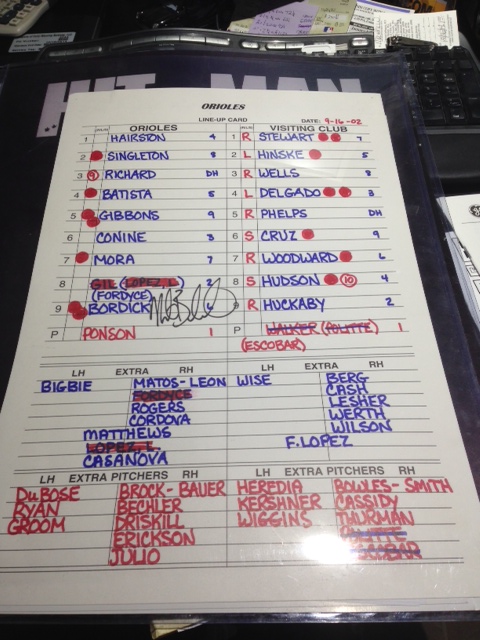 HIT MAN
ORIOLES
LINE-UP CARD DATE: 9-16-02
ORIOLES VISITING CLUB
1 HAIRSTON 4 1 R STEWART 7
2 SINGLETON 8 2 L HINSKE 5
3 9 RICHARD DH 3 R WELLS 8
4 BATISTA 5 4 L DELGADO 3
5 GIBBONS 9 5 R PHELPS DH
6 CONINE 3 6 S CRUZ 9
7 MORA 7 7 R WOODWARD 6
8 GIL (LOPEZ, L.) 2 8 S HUDSON 10 4
(FORDYCE)
9 BORDICK 9 R HUCKABY 2
P PONSON 1 P WALKER (POLITTE) 1
(ESCOBAR)
LH EXTRA RH LH EXTRA RH
BIGBIE MATOS-LEON WISE BERG
FORDYCE CASH
ROGERS LESHER
CORDOVA WERTH
MATTHEWS WILSON
LOPEZ, L. F.LOPEZ
CASANOVA
LH EXTRA PITCHERS RH LH EXTRA PITCHERS RH
DuBOSE BROCK-BAUER HEREDIA BOWLES-SMITH
RYAN BECHLER KERSHNER CASSIDY
GROOM DRISKILL WIGGINS THURMAN
ERICKSON POLITTE
JULIO ESCOBAR